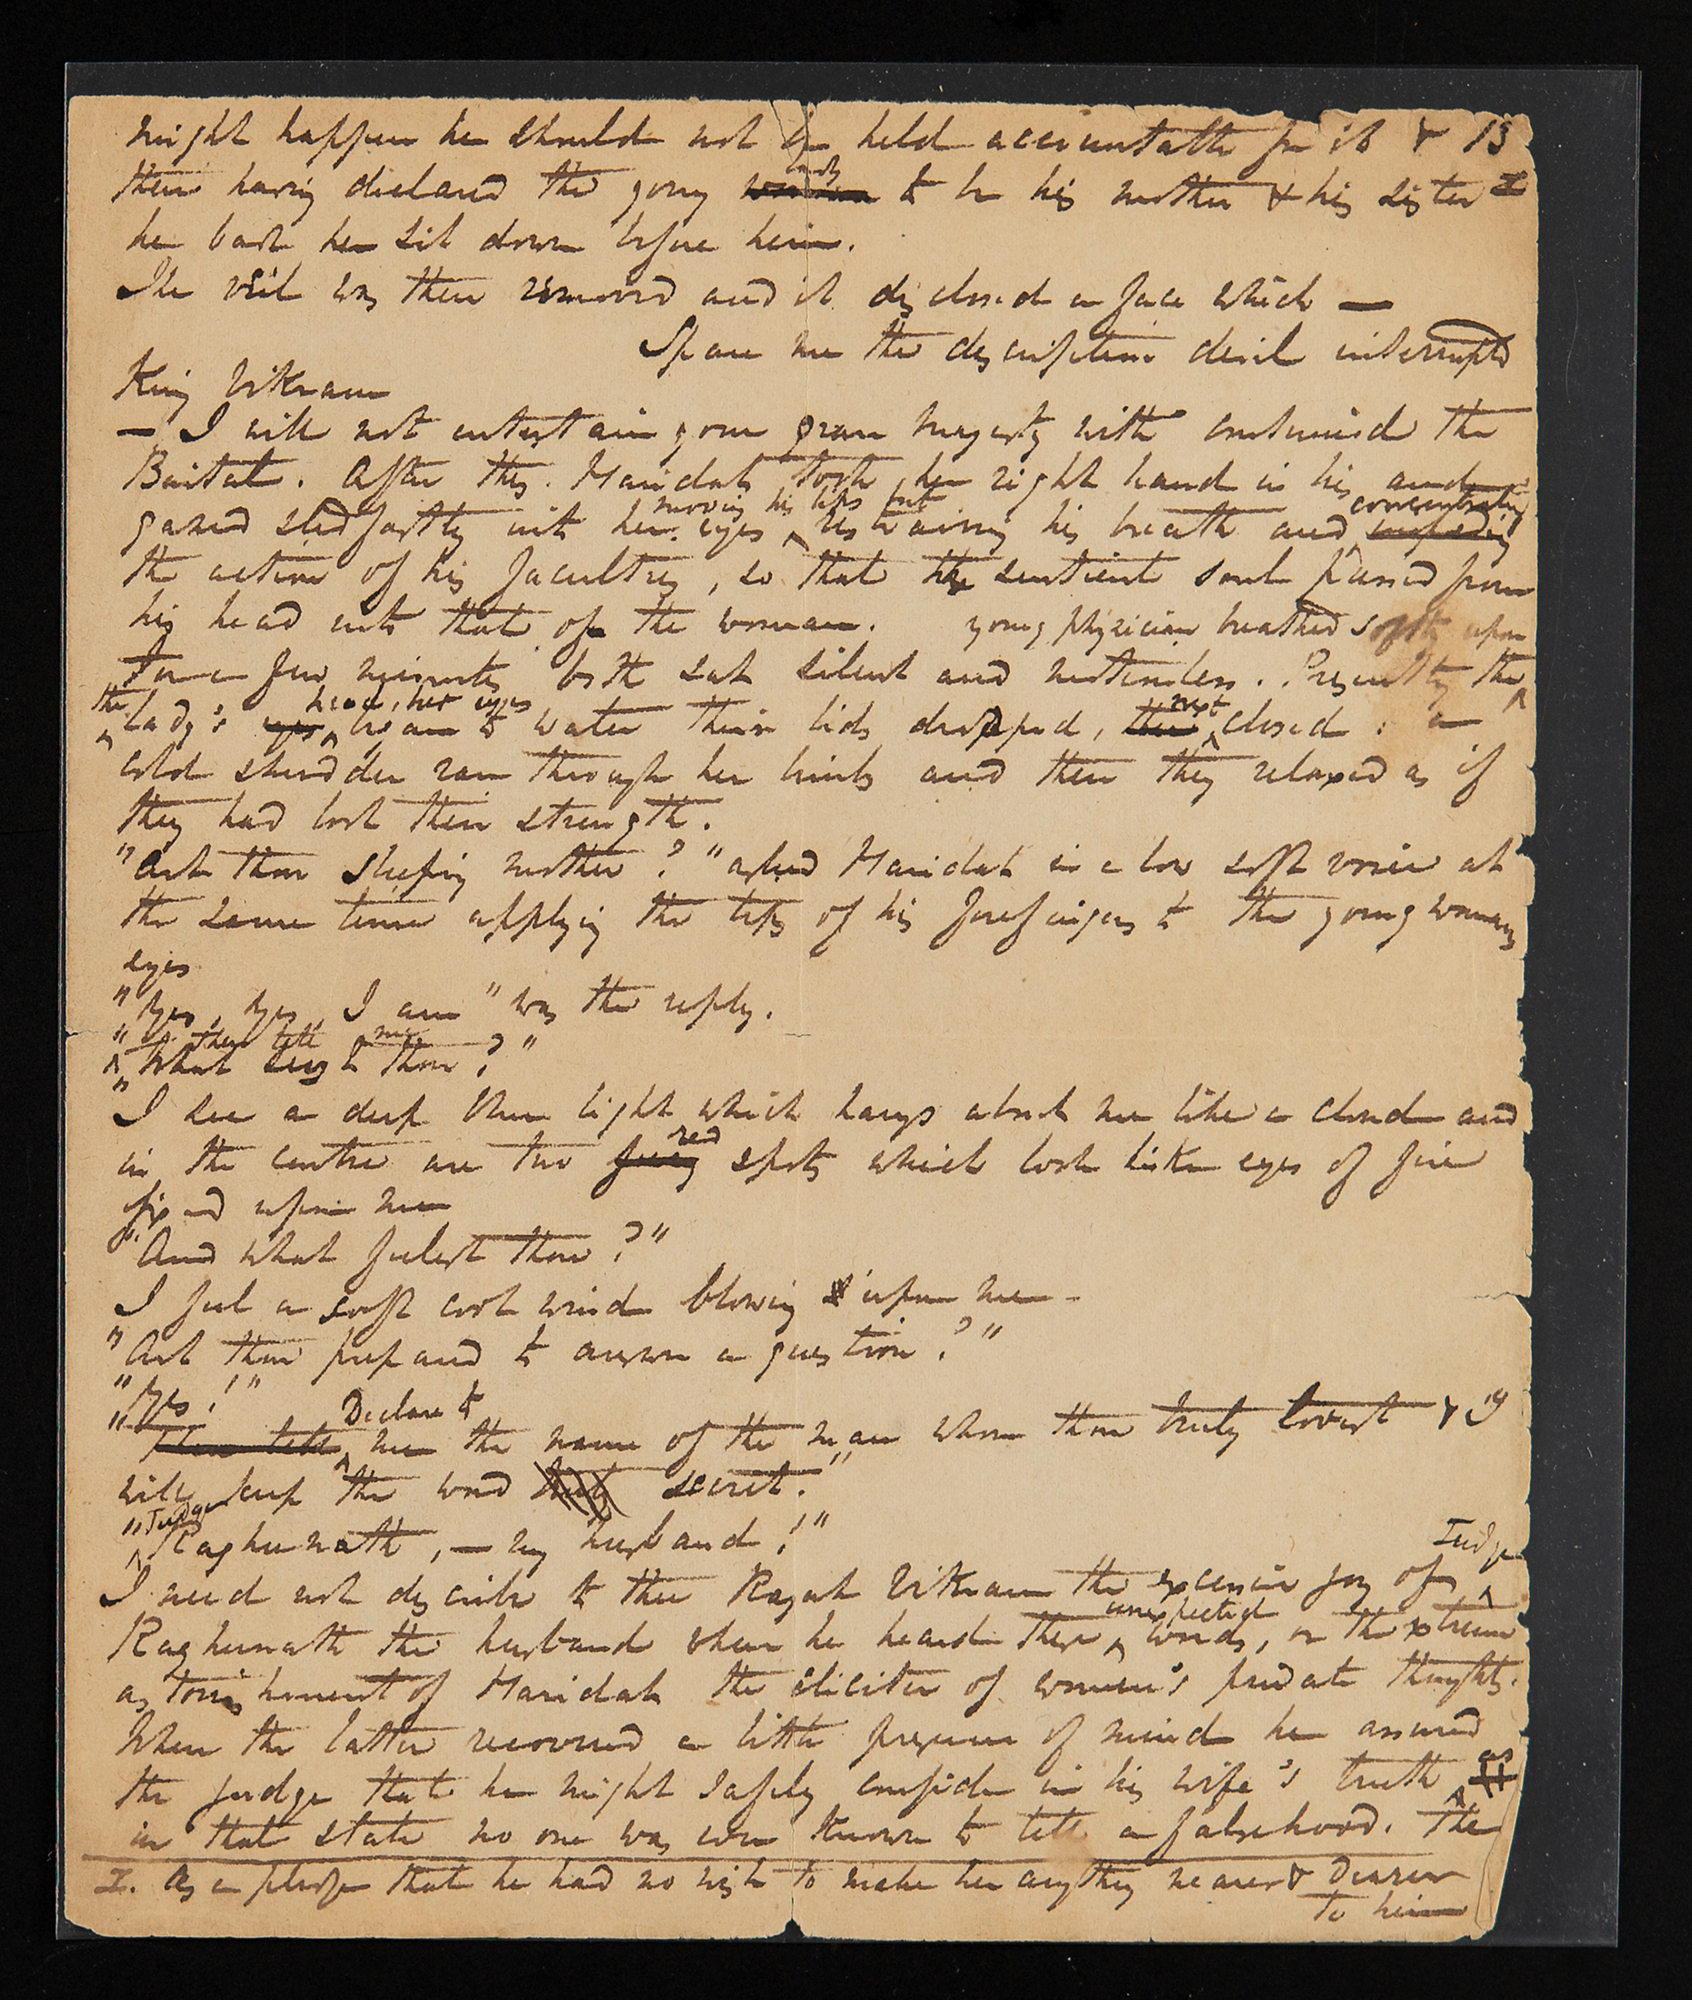 might happen he should not be held accountable for it & 13
then having declared the young woman lady to be his mother & his sister I
he bade her sit down before him.
The veil was then removed and it disclosed a face which —
Spare me the description devil interrupted
King Vikram
— I will not entertain your grave Majesty with continued the
Baital. After this Haridas took her right hand in his and
moving his lips but concentrating
gazed stedfastly into her eyes restraining his breath and
the action of his faculties, so that the sentient soul passed from
his head into that of the woman. young physician breathed softly upon
For a few minutes both sat silent and motionless. Presently the
the head, her eyes next
lady's eyes began to water their lids dropped, then closed : a
cold shudder ran through her limbs and then they relaxed as if
they had lost their strength.
"Art thou sleeping mother?" asked Haridas in a low soft voice at
the same time applying the tips of his forefingers to the young womans
eyes
"Yes, yes, I am" was the reply.
then tell me
"What seest thou?"
"I see a deep blue light which hangs about me like a cloud and
red
in the centre are two fiery spots which look like eyes of fire
fixed upon me
"And what feelest thou?"
I feel a soft cool wind blowing upon me —
"Art thou prepared to answer a question?"
"Yes!"
Declare to
"Then tell me the name of the man whom thou truly lovest & I
will keep the word secret."
Judge
"Raghunath, — my husband!"
Judge
I need not describe to thee Rajah Vikram the excessive joy of
unexpected
Raghunath the husband when he heard these words, or the xtreme
astonishment of Haridas the eliciter of women's private thoughts.
When the latter recovered a little presence of mind he assured
as
the judge that he might safely confide in his wife's truth
in that state no one was ever known to tell a falsehood. The
I. As a pledge that he had no wish to make her anything nearer & dearer
to him